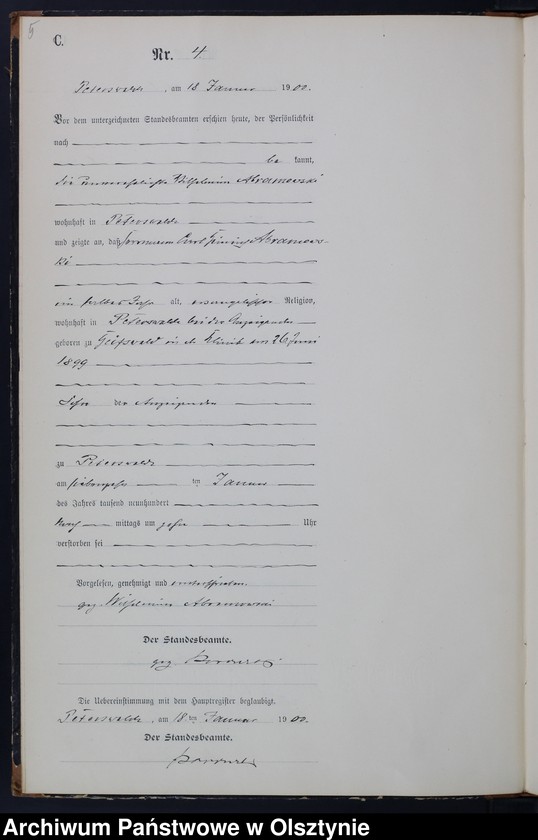 5
C.
Nr. 4
Peterswalde, am 18 Januar 1900.
Vor dem unterzeichneten Standesbeamten erschien heute, der Persönlichkeit
nach
be kannt,
die unverehelichte Wilhelmine Abramowski
wohnhaft in Peterswalde
und zeigte an, daß Hermann Abramows-
ki
ein halbes Jahr alt, evangelischer Religion,
wohnhaft in Peterswalde bei der Anzeigenden
geboren zu in der Klinik am 26 Juni
1899
Sohn der Anzeigenden
zu Peterswalde
am siebenzehn ten Januar
des Jahres tausend neunhundert
Nach mittags um zehn Uhr
verstorben sei
Vorgelesen, genehmigt und unterschrieben.
gez. Wilhelmine Abramowski
Der Standesbeamte.
gez.
Die Uebereinstimmung mit dem Hauptregister beglaubigt.
Peterswalde, am 18 ten Januar 1900.
Der Standesbeamte.
Archiwum Państwowe w Olsztynie